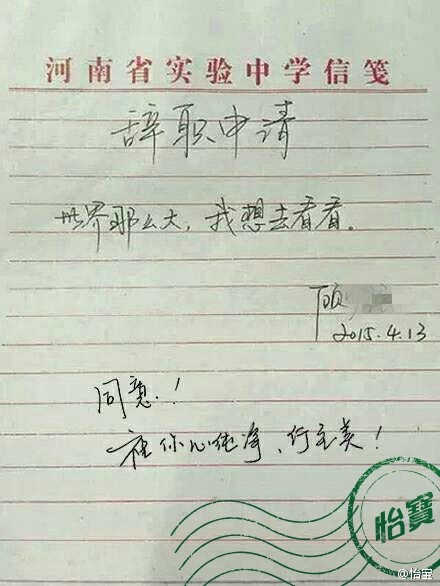 河南省实验中学信笺
辞职申请
世界那么大，我想去看看。
顾
2015.4.13
同意！
祝你心纯净、行至美！
怡寶
@怡宝